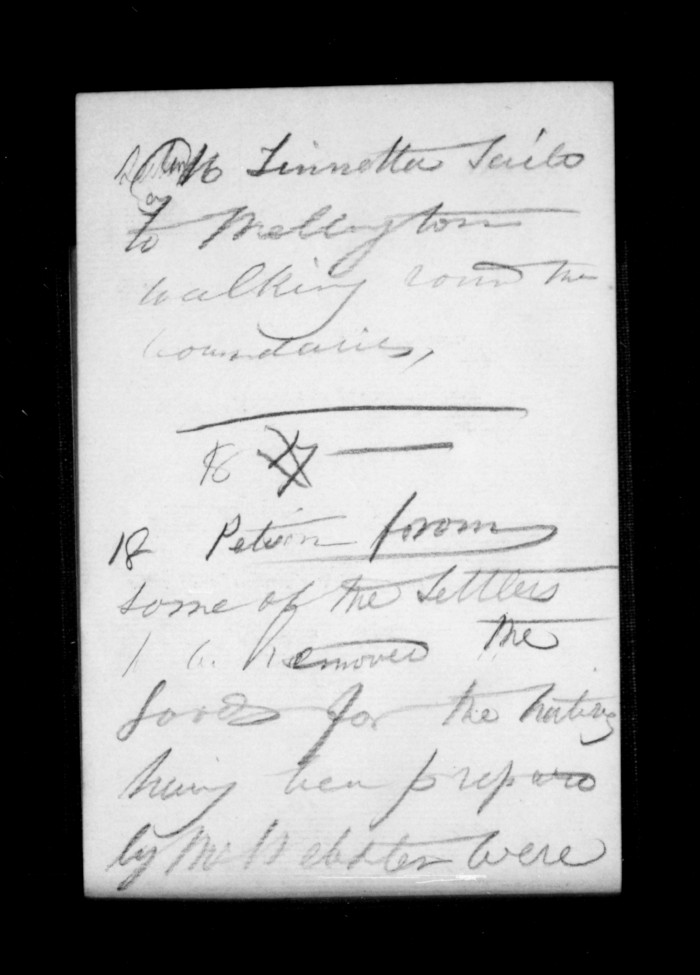 16 Linnetta Sails
to Wellington
walking round the
boundaries,
18
18 Petition from
some of the Settlers
removed the
goods for the natives
having been prepared
by Mr Webster were